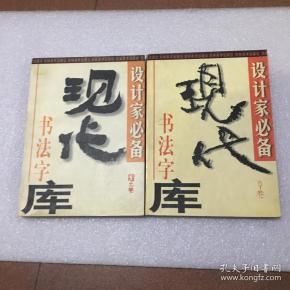 设计家必备
现代
书法字
库
设计家必备
現代
书法字
库
孔夫子旧书网